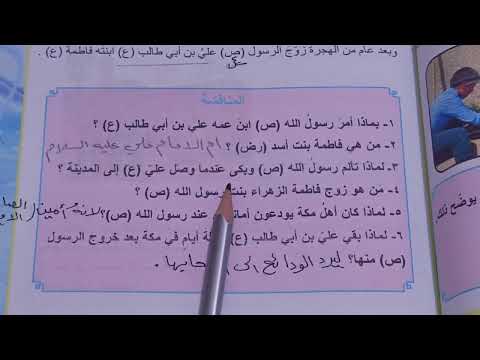 وبعد عام من الهجرة زوّج الرسول (ص) عليَّ بن أبي طالب (ع) ابنته فاطمة (ع) .
المناقشة
١- بماذا أمرَ رسولُ الله (ص) ابنَ عمه علي بن أبي طالب (ع) ؟
٢- من هي فاطمة بنت أسد (رض) ؟ ام الامام علي عليه السلام
٣- لماذا تألم رسولُ الله (ص) وبكى عندما وصل عليٌ (ع) إلى المدينة ؟
٤- من هو زوج فاطمة الزهراء بنت رسول الله (ص) ؟
٥- لماذا كان أهلُ مكة يودعون عند رسول الله (ص)؟ لانه
٦- لماذا بقي علي بن أبي طالب (ع) أيام في مكة بعد خروج الرسول
(ص) منها؟ ليرد الودائع الى
يوضح ذلك